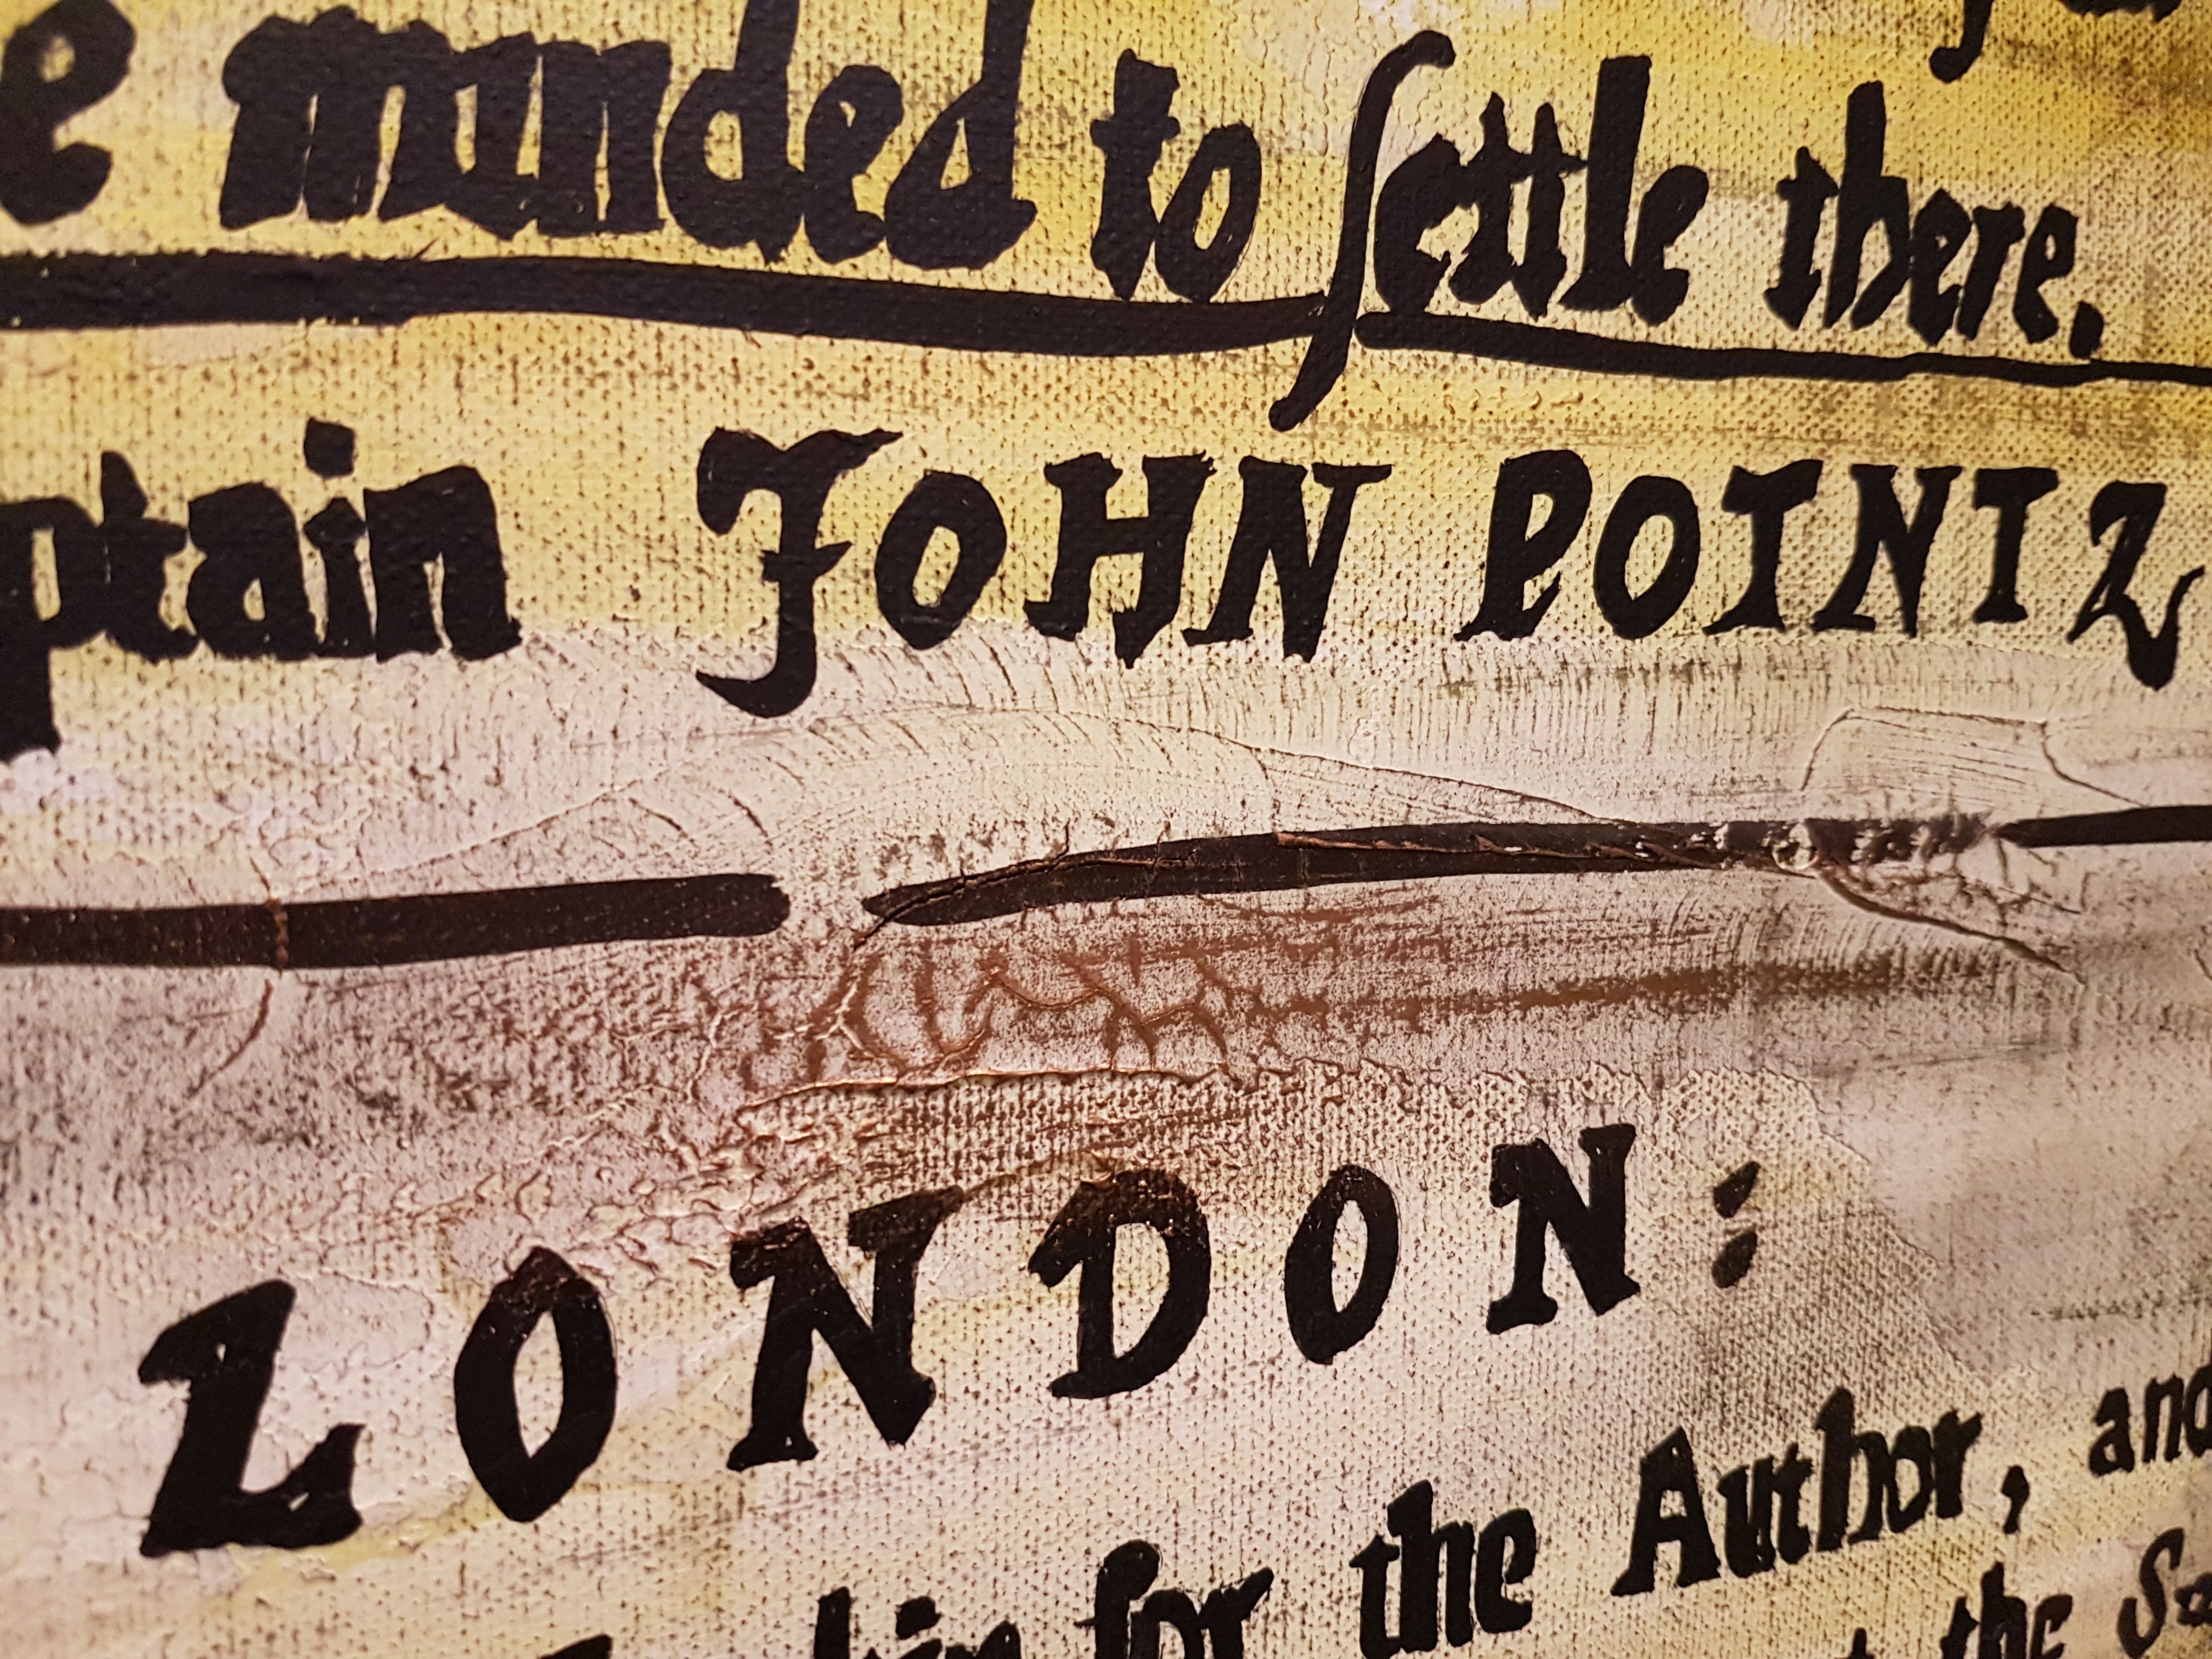 e minded to ſettle there.
ptain JOHN POINTZ
LONDON:
kin for the Author, and
the